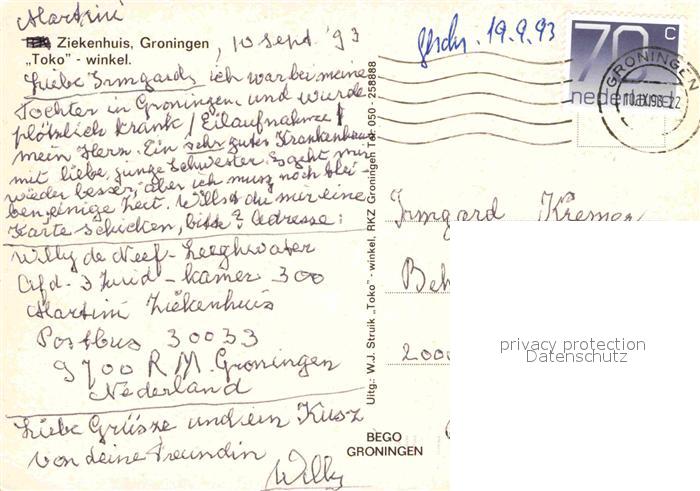 Martini
Ziekenhuis, Groningen
„Toko" - winkel.
10 Sept. '93
Liebe Irmgard, ich war bei meine
Tochter in Groningen und wurde
plötslich krank / Eilaufnahme /
mein Herz. Ein sehr gutes Krankenhaus
mit liebe, junge Schwester. Es geht mir
wieder besser, aber ich musz noch blei-
ben, einige Zeit. Willst du mir eine
Karte schicken, bitte? Adresse:
Willy de Neef - Leeghwater
Afd. 3 Zuid - kamer 300
Martini Ziekenhuis
Postbus 30033
9700 R.M. Groningen
Nederland
Liebe Grüsze und ein Kusz
von deine Freundin
Willy
Uitg.: W.J. Struik „Toko" - winkel, RKZ Groningen Tel. 050 - 258888
BEGO
GRONINGEN
geschr. 19.9.93
70 c
nederland
GRONINGEN
10.IX.93-22
Irmgard Kremer
Beh
2000
privacy protection
Datenschutz